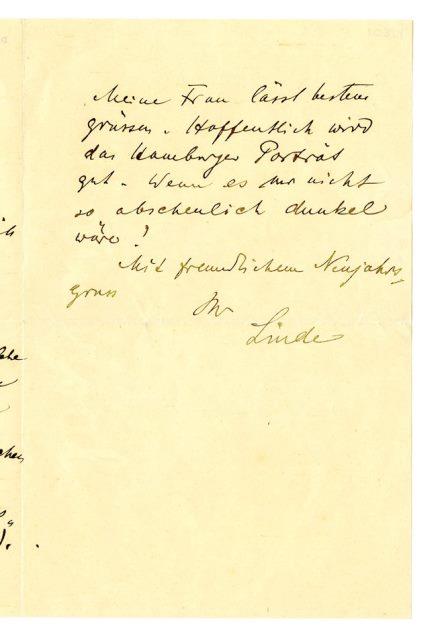 Meine Frau lässt bestens
grüssen. Hoffentlich wird
das Hamburger Porträt
gut. Wenn es nur nicht
so abscheulich dunkel
wäre!
Mit freundlichem Neujahrs-
gruss
Ihr
Linde